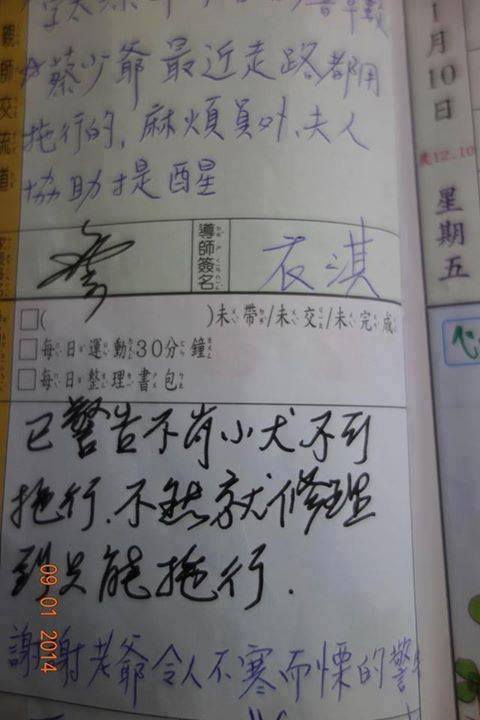 ☆蔡少爺最近走路都用
拖行的,麻煩員外、夫人
協助提醒
親師交流道
導師簽名
衣淇
□( )未帶/未交/未完成
□每日運動30分鐘
□每日整理書包
已警告不肖小犬不可
拖行.不然就修理
到只能拖行.
謝謝老爺令人不寒而慄的警
1月10日
農12.10
星期五
09 01 2014